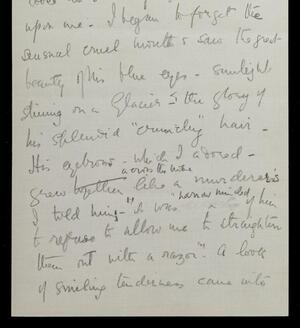 upon me - I began to forget the
sensual cruel mouth & saw the great
beauty of his blue eyes - sunlight
shining on a Glacier & the glory of
his splendid "crinkly" hair -
His eyebrows - which I adored -
across the nose
grew together like a murderer's
"narrow minded
I told him - "It was of him
to refuse to allow me to straighten
them out with a razor". A look
of smiling tenderness came into